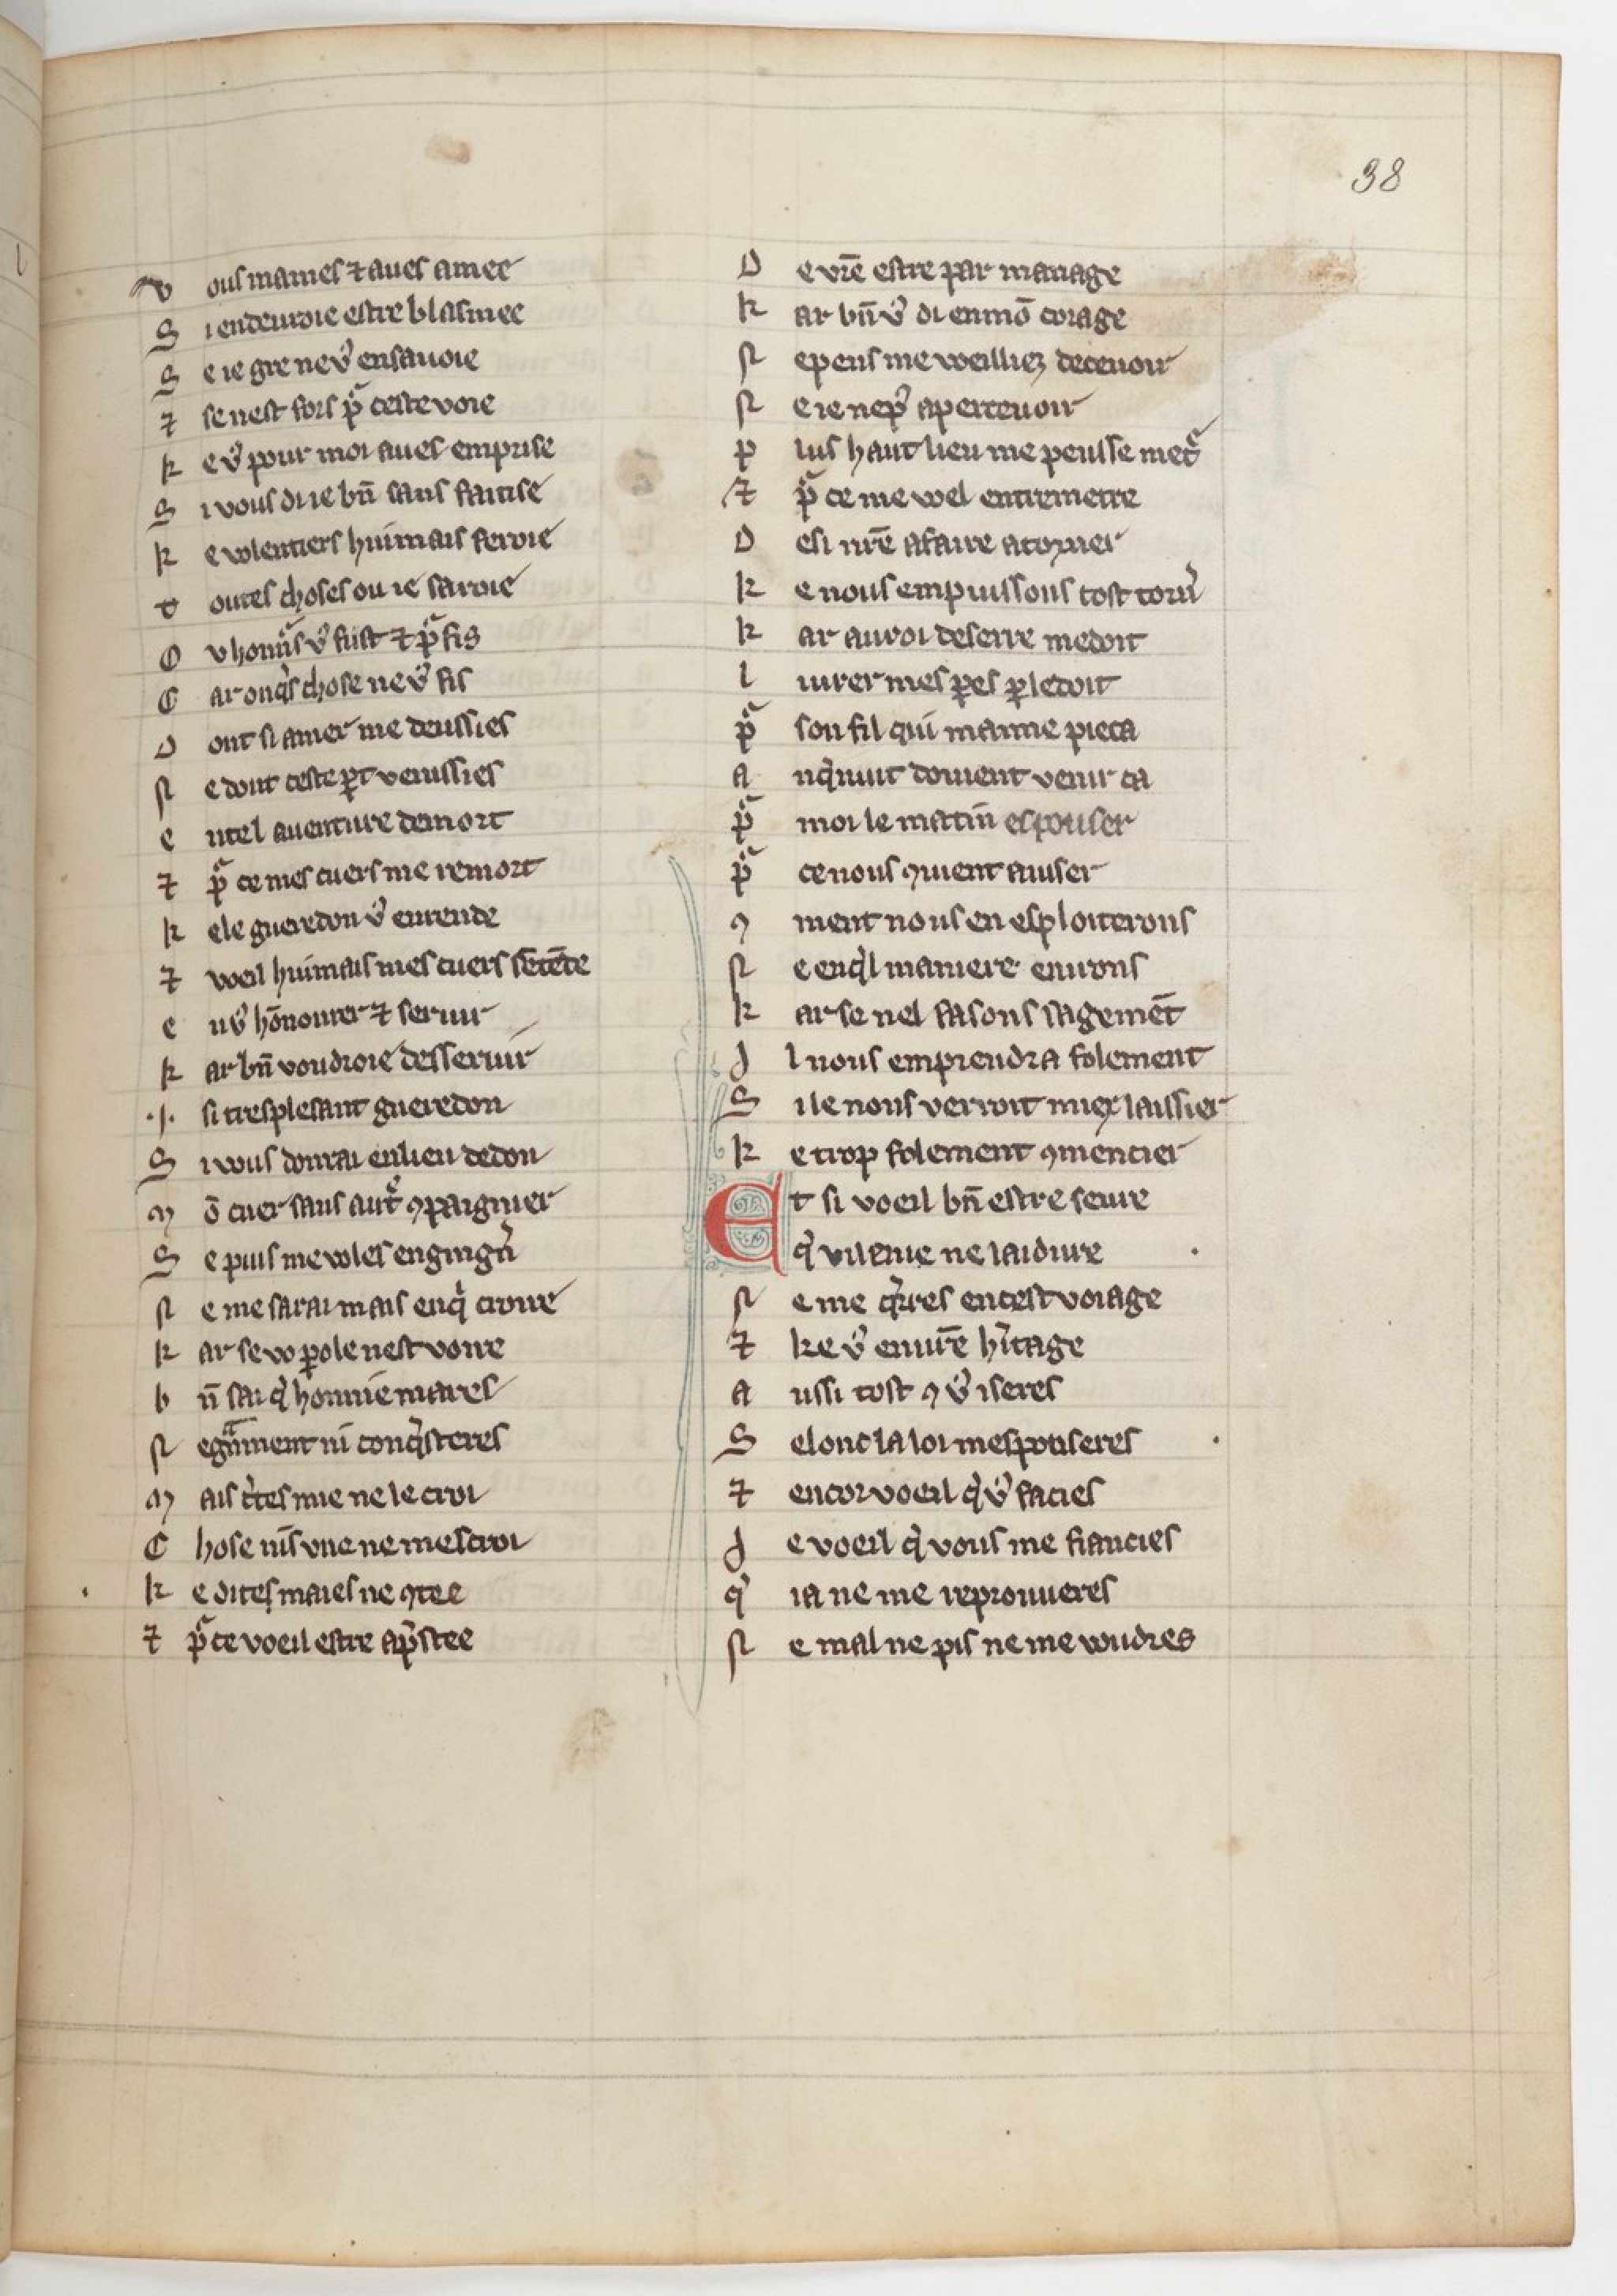 38
V ous mames ⁊ aues amee
S i endeuroie estre blasmee
S e ie gre ne vꝰ ensauoie
⁊ se nest fors pͬ ceste voie
k e vꝰ pour moi aues emprise
S i vous di ie bn̄ sans faintise
k e volentiers huimais feroie
t outes choses ou ie saroie
O v honnͬs vꝰ fust ⁊ pͬfis
C ar onq̓s chose ne vꝰ fis
D ont si amer me deussies
N e dont ceste ꝑt venissies
e ntel auenture de mort
⁊ pͬ ce mes cuers me remort
k e le gueredon vꝰ en rende
⁊ voeil huimais mes cuers sētēde
e n vꝰ hōnourer ⁊ seruir
k ar bn̄ voudroie desseruir
.j. si tresplesant gueredon
S i vous donrai en lieu de don
m ō cuer sans autͤ ꝯpaignier
S e puis me voles engingn̓
N e me sarai mais enq̓ croire
k ar se vo ꝑole nest voire
b n̄ sai q̓ honnie mares
N egāment ni conq̓steres
m ais c̓tes mie ne le croi
C hose nis vne ne mescroi
k e dites maies ne ꝯtee
⁊ pͬ ce voeil estre ap̓stee
D e vr̄e estre par mariage
k ar bn̄ vꝰ di en mō corage
N e pens me weilliez deceuoir
N e ie ne pꝰ aperceuoir
P lus haut lieu me peusse metͬ
⁊ pͬ ce me wel entremetre
D e si nr̄e afaire atorner
k e nous em puissons tost torn̓
k ar au roi de serre me doit
l iurer mes ꝑes ꝑ le doit
pͬ son fil qui maime pieca
a nq̓nuit doiuent venir ca
pͬ moi le matin espouser
pͬ ce nous ꝯuient auiser
ꝯ ment nous en esploiterons
N e en q̓l maniere en irons
k ar se nel fasons sagemēt
J l nous emprendra folement
S i le nous verroit miex laissier
k e trop folement ꝯmencier
E t si voeil bn̄ estre seure
q̓ vilenie ne laidure
N e me q̓rres en cest voiage
⁊ ke vꝰ en vr̄e h̓itage
a ussi tost ꝯ vꝰ iseres
S elonc la loi mespouseres
⁊ encor voeil q̓ vꝰ facies
J e voeil q̓ vous me fiancies
q̓ ia ne me reprouueres
N e mal ne pis ne me voudres